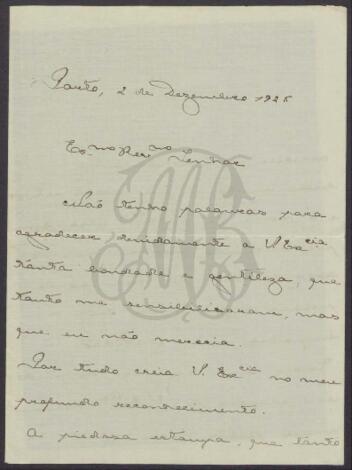 Porto, 2 de Dezembro 192
Ex.mo Rev.mo Senhor
Não tenho palavras para
agradecer devidamente a V. Ex.cia
tanta bondade e gentileza, que
tanto me sensibilisaram, mas
que eu não merecia.
Por tudo creia V. Ex.cia no meu
profundo reconhecimento.
A piedosa estampa, que tanto